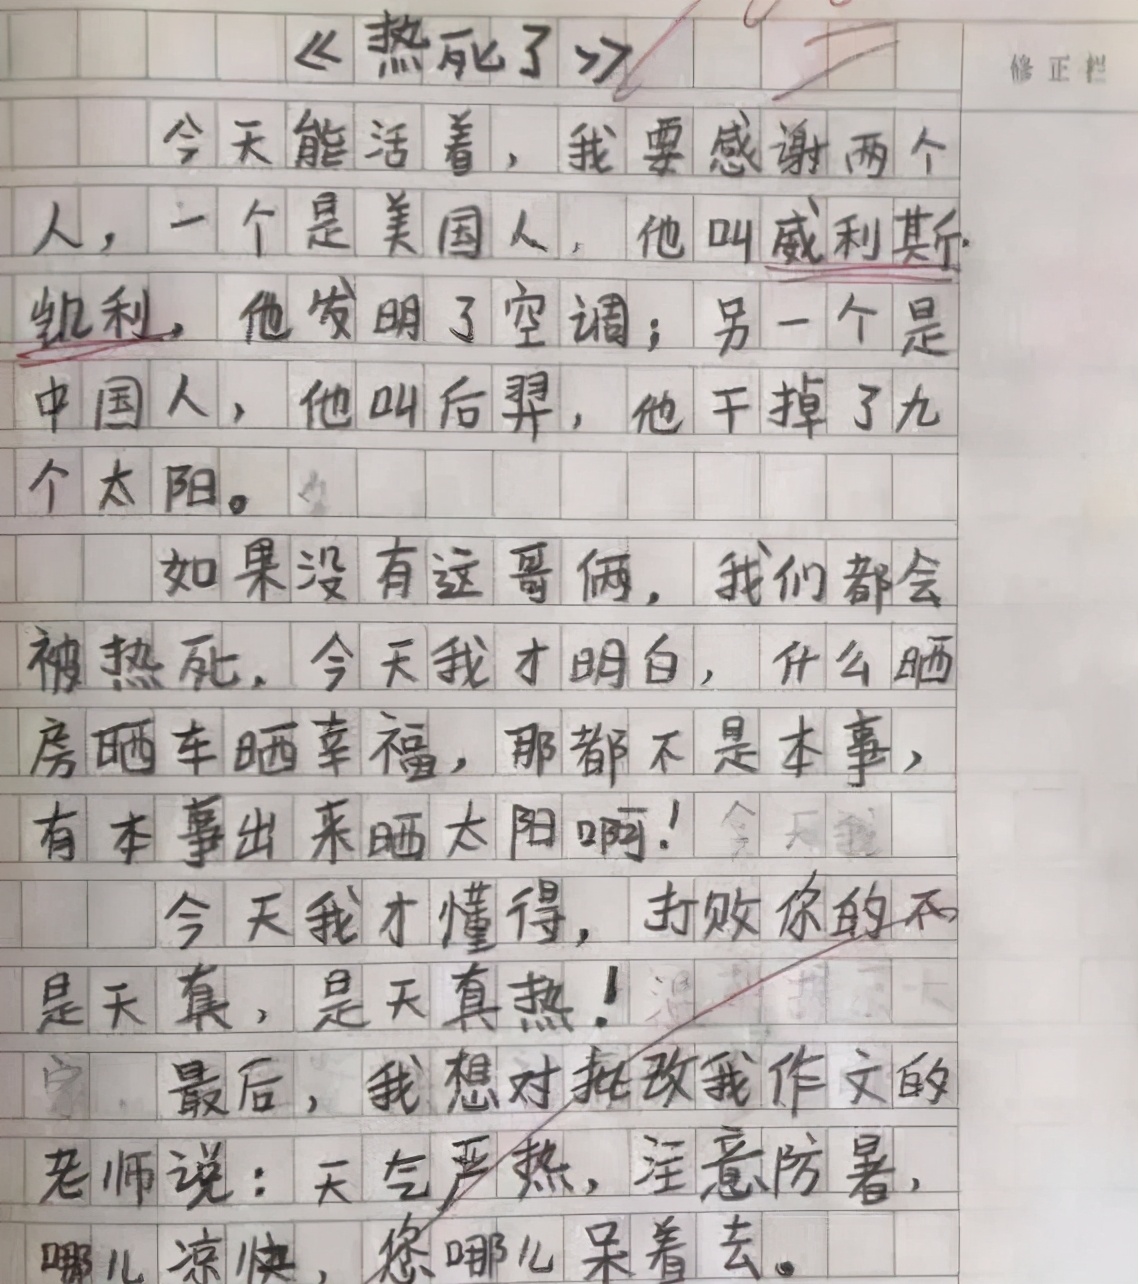 《热死了》
修正栏
今天能活着，我要感谢两个
人，一个是美国人，他叫威利斯·
凯利，他发明了空调；另一个是
中国人，他叫后羿，他干掉了九
个太阳。
如果没有这哥俩，我们都会
被热死，今天我才明白，什么晒
房晒车晒幸福，那都不是本事，
有本事出来晒太阳啊！
今天我才懂得，打败你的不
是天真，是天真热！
最后，我想对批改我作文的
老师说：天气严热，注意防暑，
哪儿凉快，您哪儿呆着去。